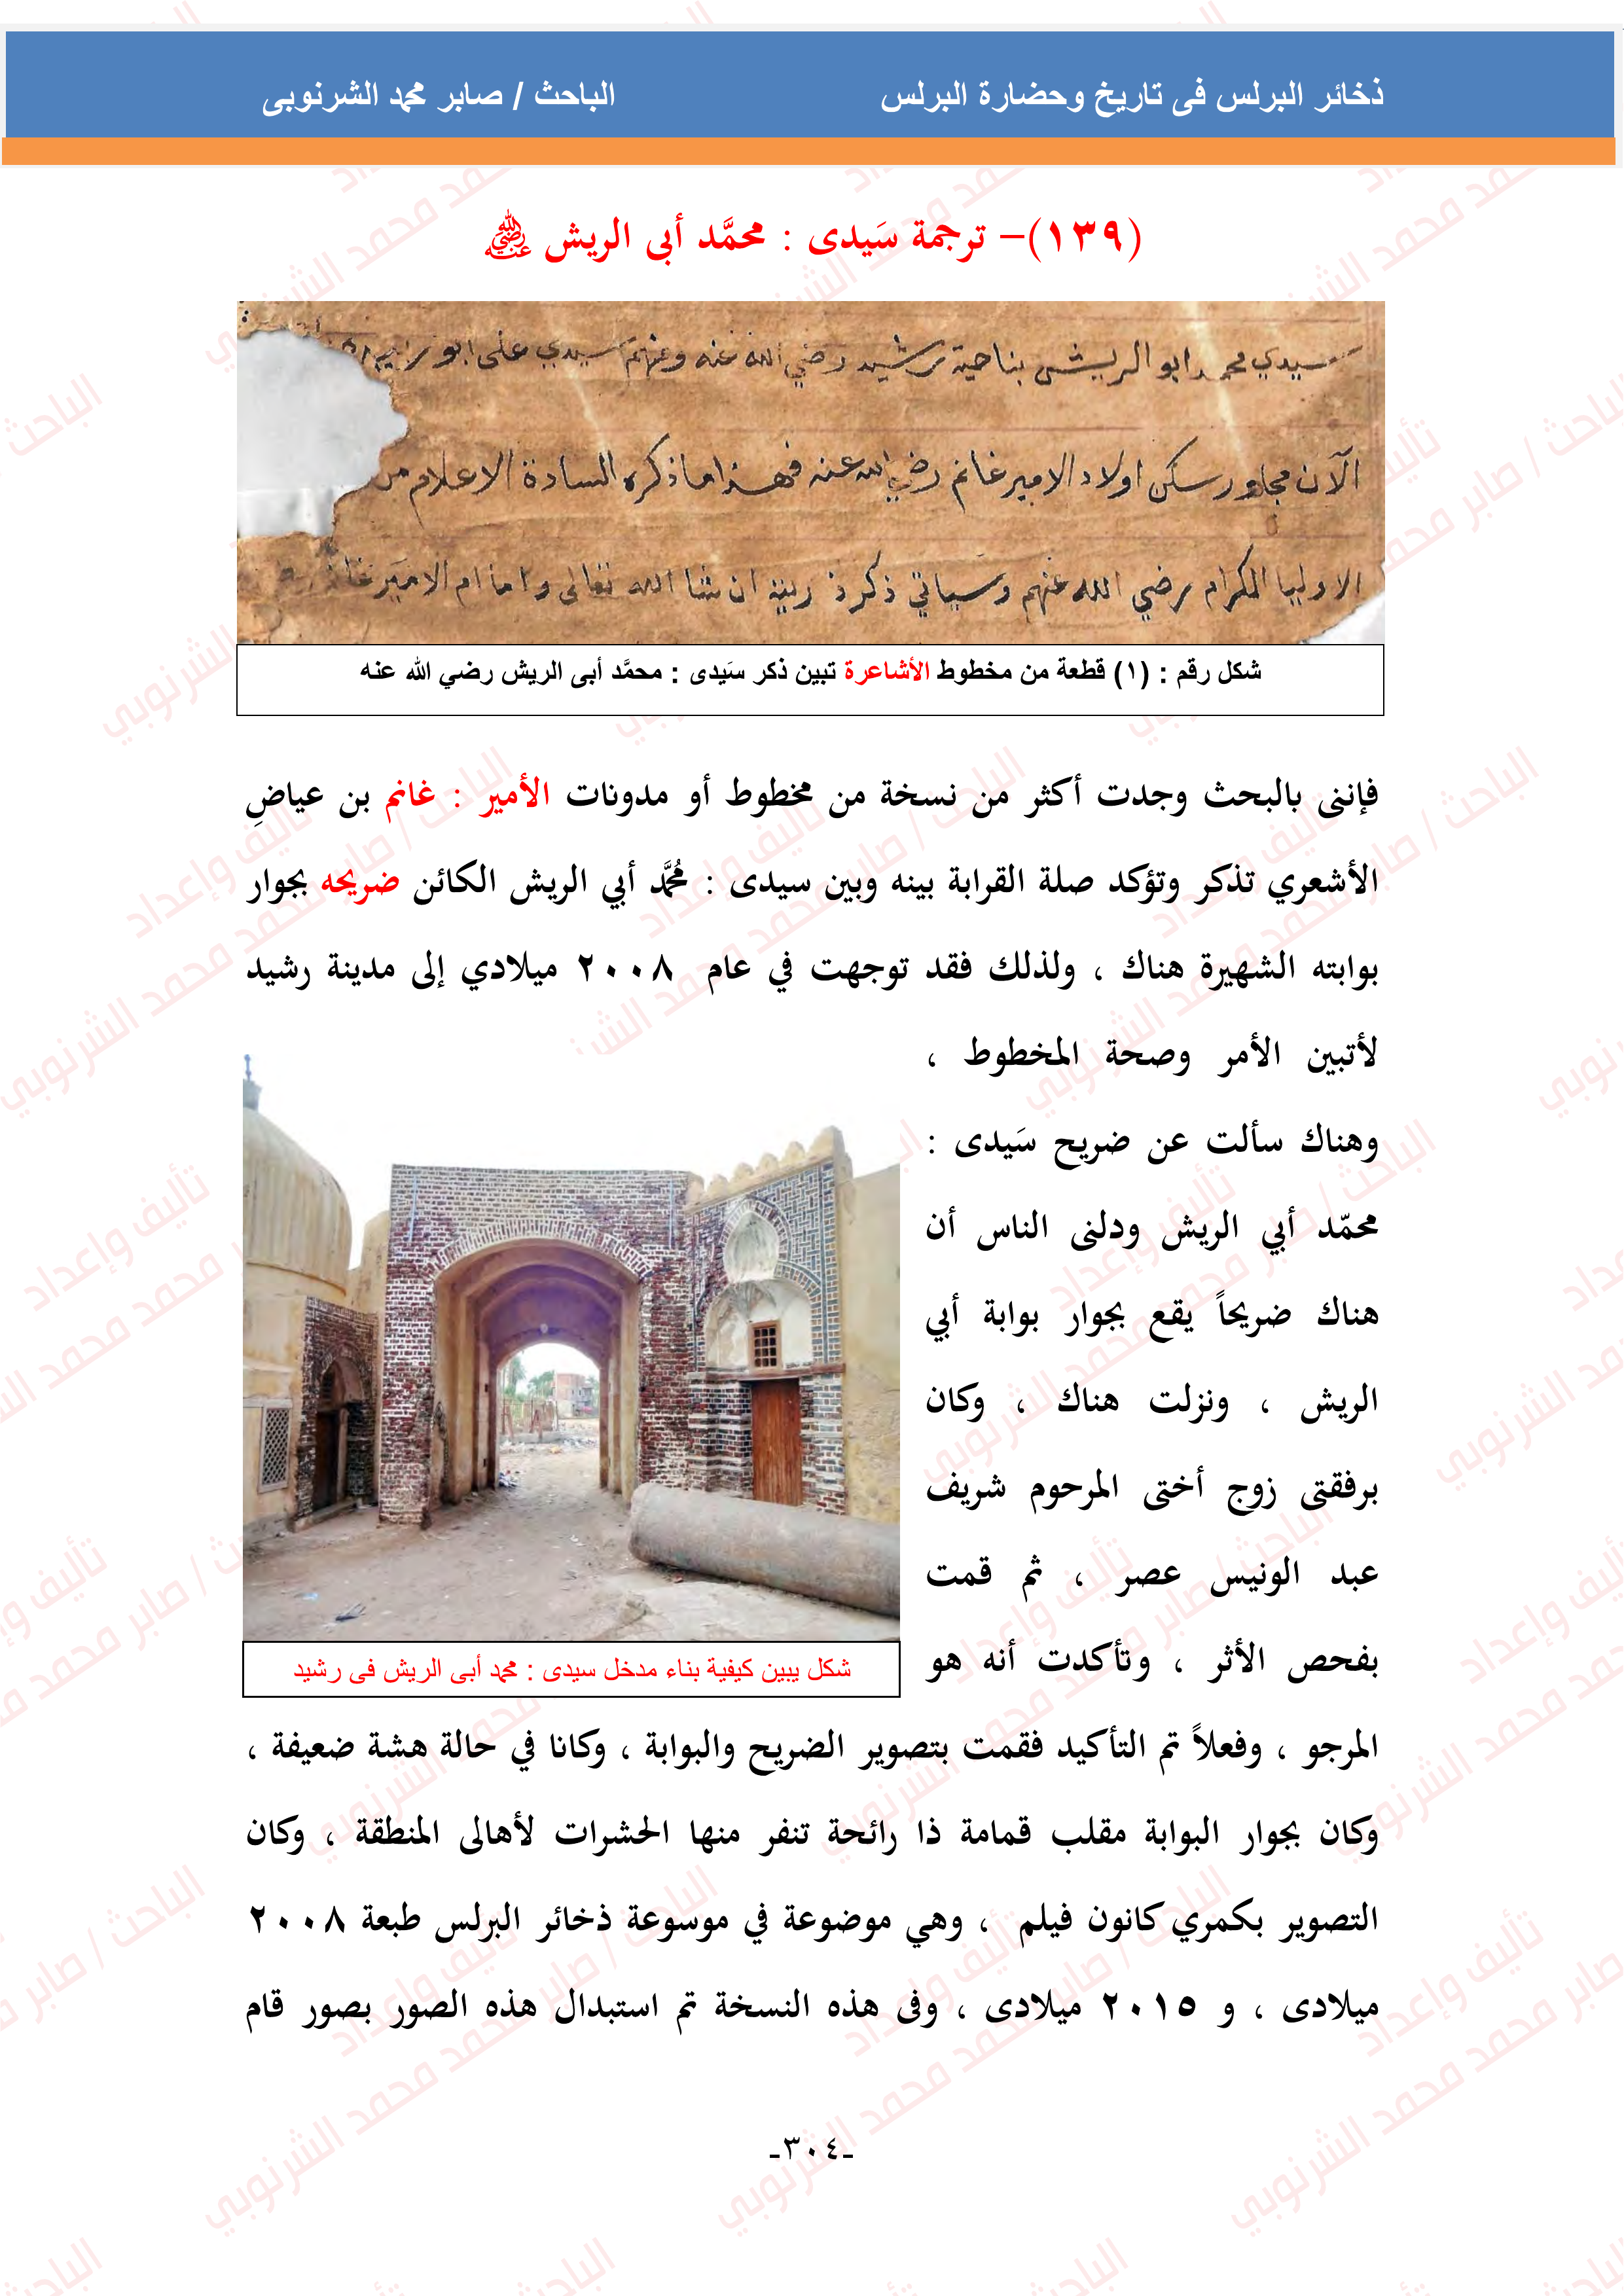 ذخائر البرلس فى تاريخ وحضارة البرلس
الباحث / صابر محمد الشرنوبى
(١٣٩)- ترجمة سَيدى : محمَّد أبى الريش ﵁
سيدي محمد ابو الريش بناحية رشيد رضي الله عنه ومنهم سيدي على ابو
الآن مجاور سكن اولاد الامير غانم رضي الله عنه فهذا ما ذكره السادة الاعلام من
الاوليا الكرام رضي الله عنهم وسياتي ذكر ذريته ان شا الله تعالى واما ام الامير غانم
شكل رقم : (١) قطعة من مخطوط الأشاعرة تبين ذكر سَيدى : محمَّد أبى الريش رضي الله عنه
فإننى بالبحث وجدت أكثر من نسخة من مخطوط أو مدونات الأمير : غانم بن عياضِ
الأشعري تذكر وتؤكد صلة القرابة بينه وبين سيدى : مُحمَّد أبي الريش الكائن ضريحه بجوار
بوابته الشهيرة هناك ، ولذلك فقد توجهت في عام ٢٠٠٨ ميلادي إلى مدينة رشيد
لأتبين الأمر وصحة المخطوط ،
وهناك سألت عن ضريح سَيدى :
محمّد أبي الريش ودلنى الناس أن
هناك ضريحاً يقع بجوار بوابة أبي
الريش ، ونزلت هناك ، وكان
برفقتى زوج أختى المرحوم شريف
عبد الونيس عصر ، ثم قمت
بفحص الأثر ، وتأكدت أنه هو
شكل يبين كيفية بناء مدخل سيدى : محمد أبى الريش فى رشيد
المرجو ، وفعلاً تم التأكيد فقمت بتصوير الضريح والبوابة ، وكانا في حالة هشة ضعيفة ،
وكان بجوار البوابة مقلب قمامة ذا رائحة تنفر منها الحشرات لأهالى المنطقة ، وكان
التصوير بكمري كانون فيلم ، وهي موضوعة في موسوعة ذخائر البرلس طبعة ٢٠٠٨
ميلادى ، و ٢٠١٥ ميلادى ، وفى هذه النسخة تم استبدال هذه الصور بصور قام
-٣٠٤-
تأليف وإعداد
الباحث / صابر محمد محمد الشرنوبي